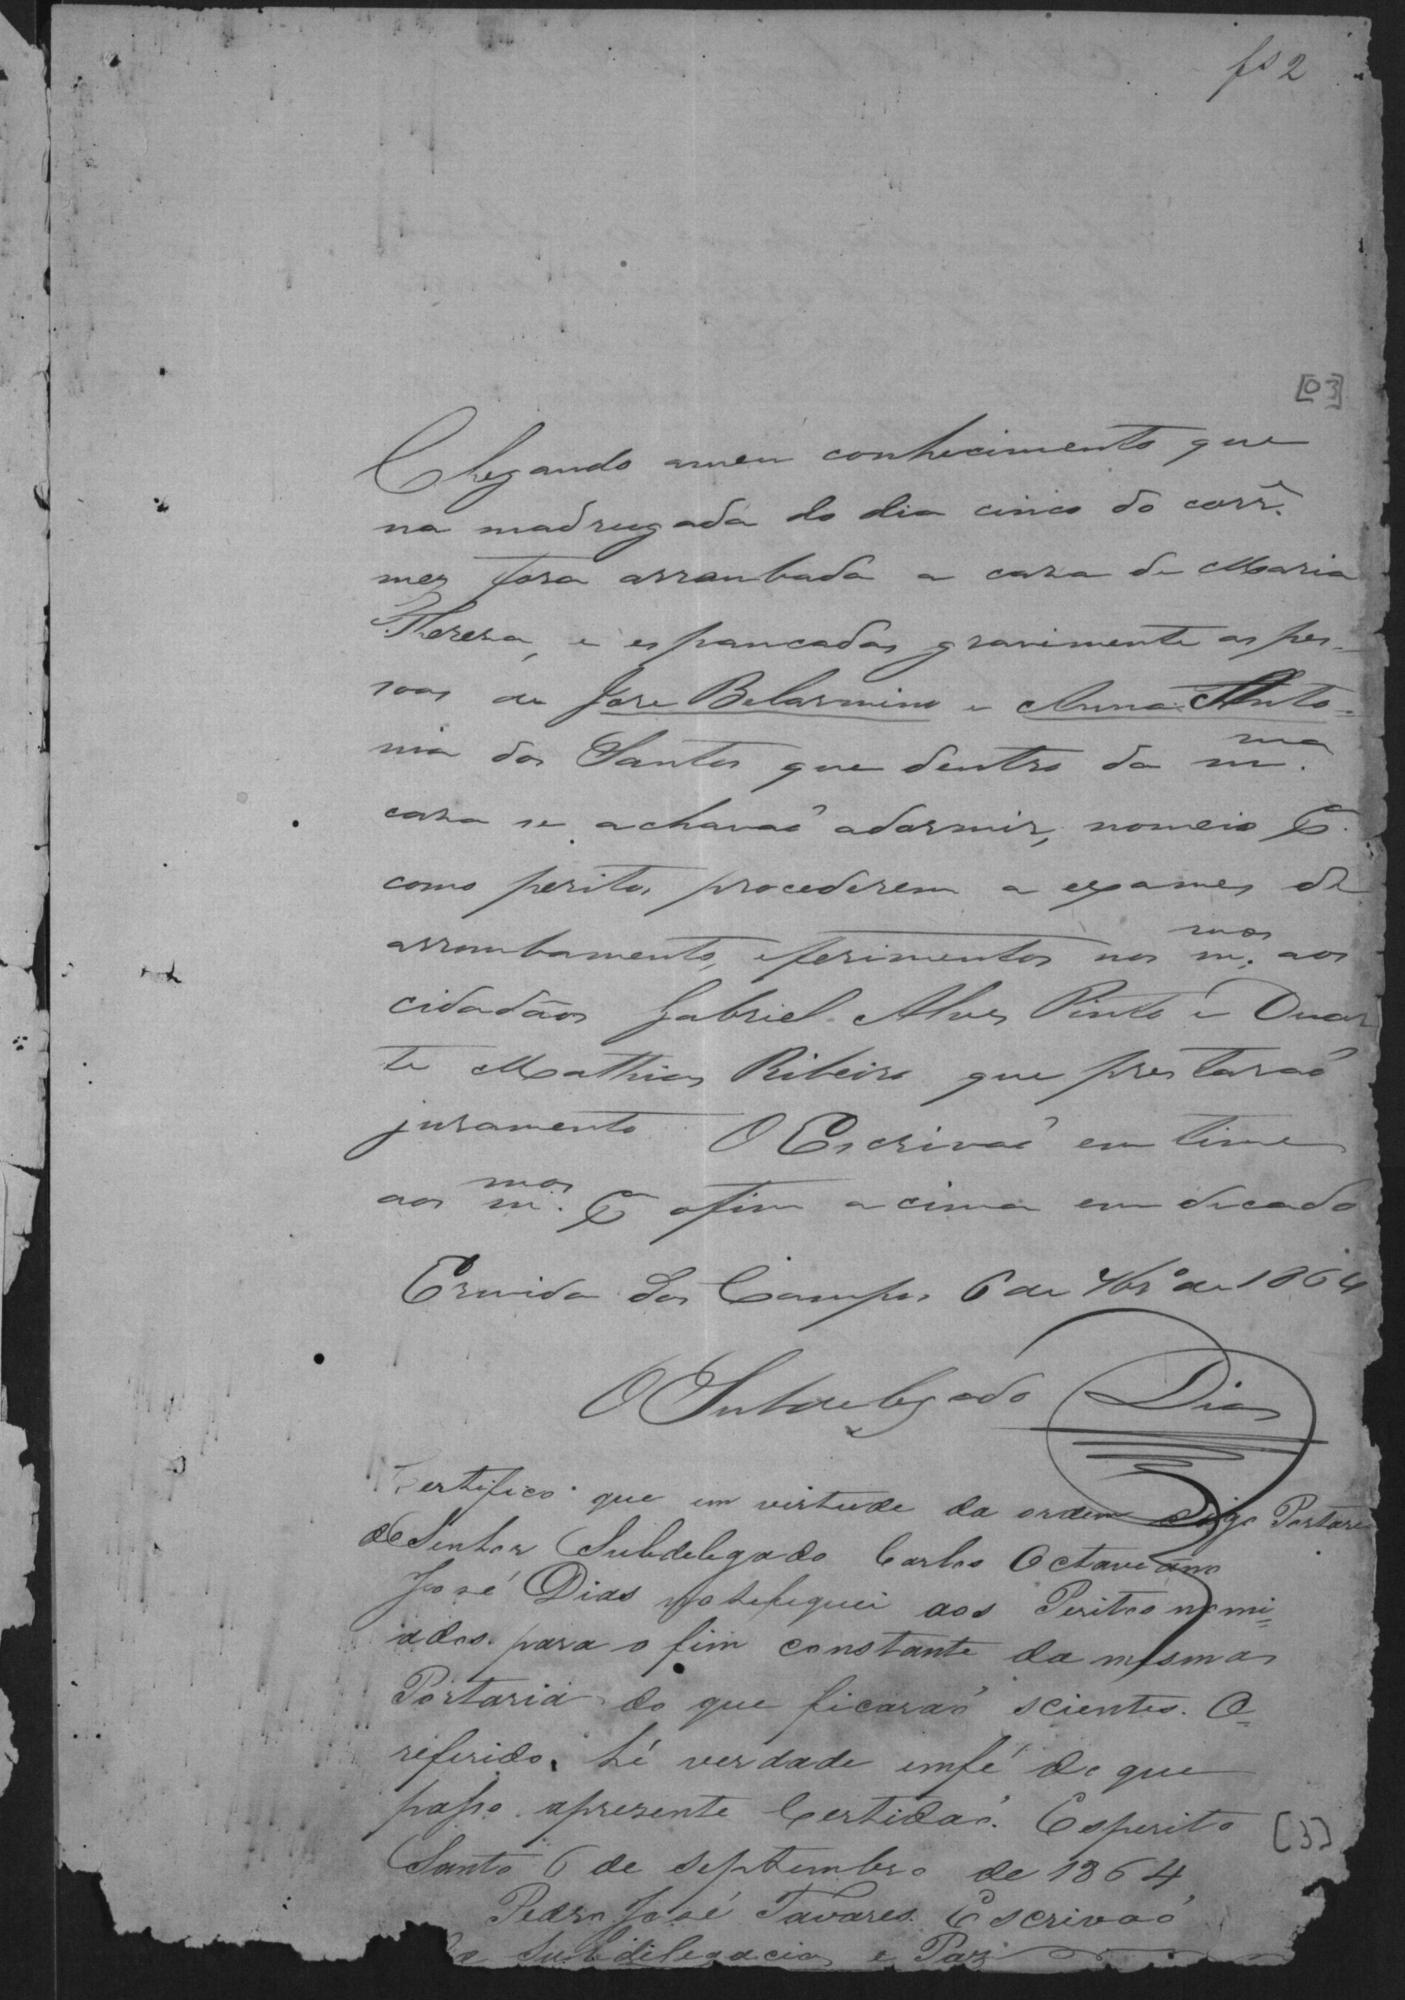 fs 2
[03]
Chegando ameu conhecimento que
na madrugada do dia cinco do corr.e
mez fora arrombada a caza de Maria
Thereza, e espancadas gravimente as pes-
soas de Joze Belarmino e Anna Anto-
nia dos Santos que dentro da m.ma
caza se achavaõ adormir, nomeio p.
como peritos procederem a exames de
arrombamento, eferimentos nos m.mos aos
cidadãos Gabriel Alves Pinto e Duar
te Mathias Ribeiro que prestaraõ
juramento O Escrivaõ em time
aos m.mos p ofim acima emdicado
Ermida dos Campos 6 de 7br.o de 1864
O Subdelegado Dias
Certifico que em virtude da ordem digo Portaria
do Senhor Subdelegado Carlos Octaviano
José Dias notefiquei aos Peritos nomi=
ados para o fim constante da mesma
Portaria do que ficaraõ scientes. O
referido hé verdade emfé do que
passo apresente Certidaõ. Esperito
Santo 6 de septembro de 1864
[3]
Pedro José Tavares Escrivaõ
da Subdilegacia e Paz